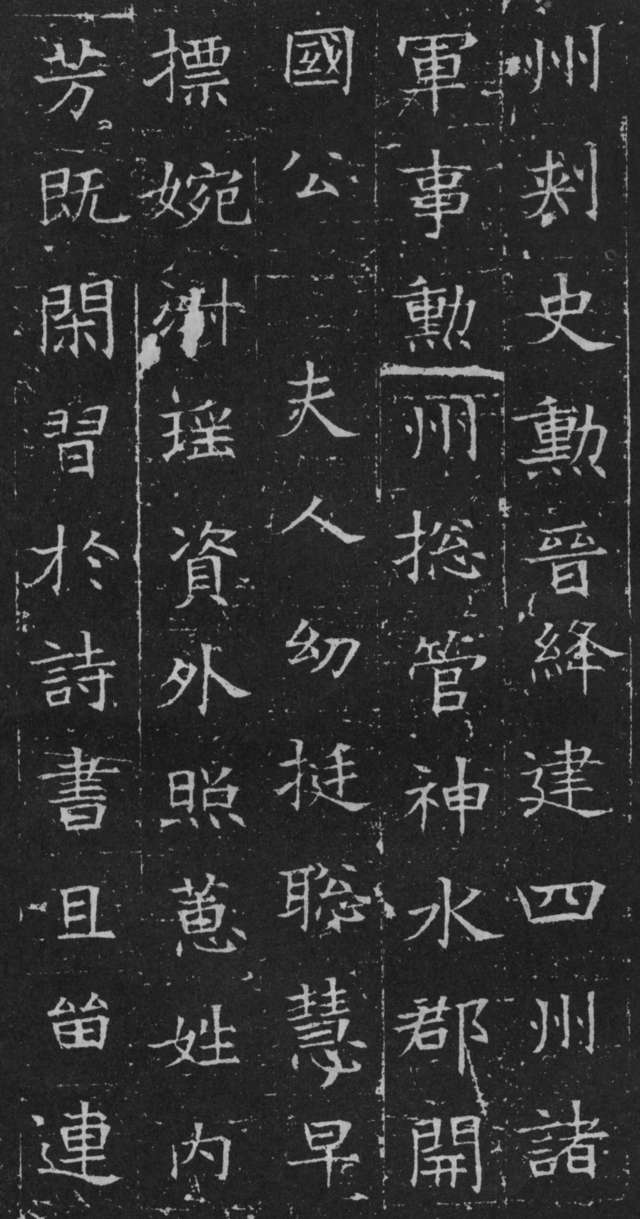 州刺史勲晉絳建四州諸
軍事勲州揔管神水郡開
國公　夫人幼挺聡慧早
摽婉淑瑶資外照蕙姓内
芳既閑習於詩書且留連